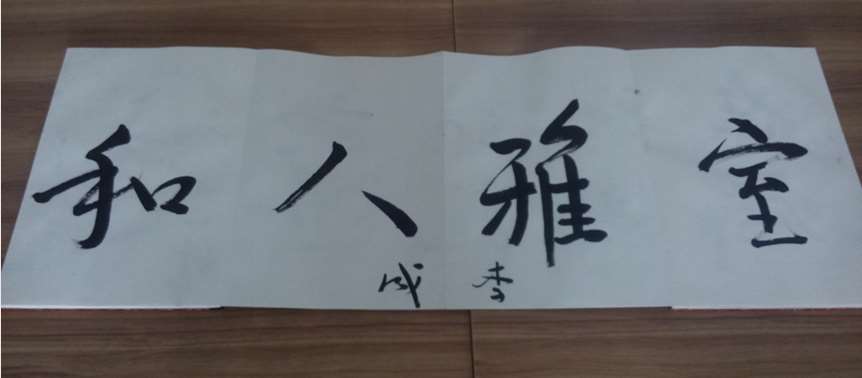 室雅人和
李成